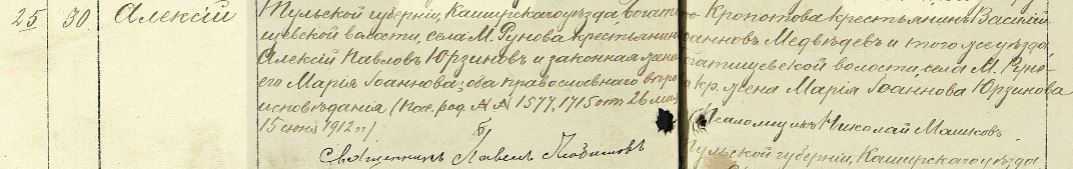 25 30. Алексій
Тульской губерніи, Каширскаго уѣзда, Богати-
щевской волости, села М. Рунова крестьянинъ
Алексій Павловъ Юрзиновъ и законная жена
его Марія Іоаннова; оба православнаго вѣро-
исповѣданія (Пас. род. №№ 1577, 1715 от 26 мая
15 1912 г.)
Священникъ Павелъ
Кропотова крестьянинъ Василій
Іоанновъ Медвѣдевъ и того же уѣзда,
Богатищевской волости, села М. Руно-
ва кр. жена Марія Іоаннова Юрзинова
Псаломщикъ Николай Машковъ
Тульской губерніи, Каширскаго уѣзда